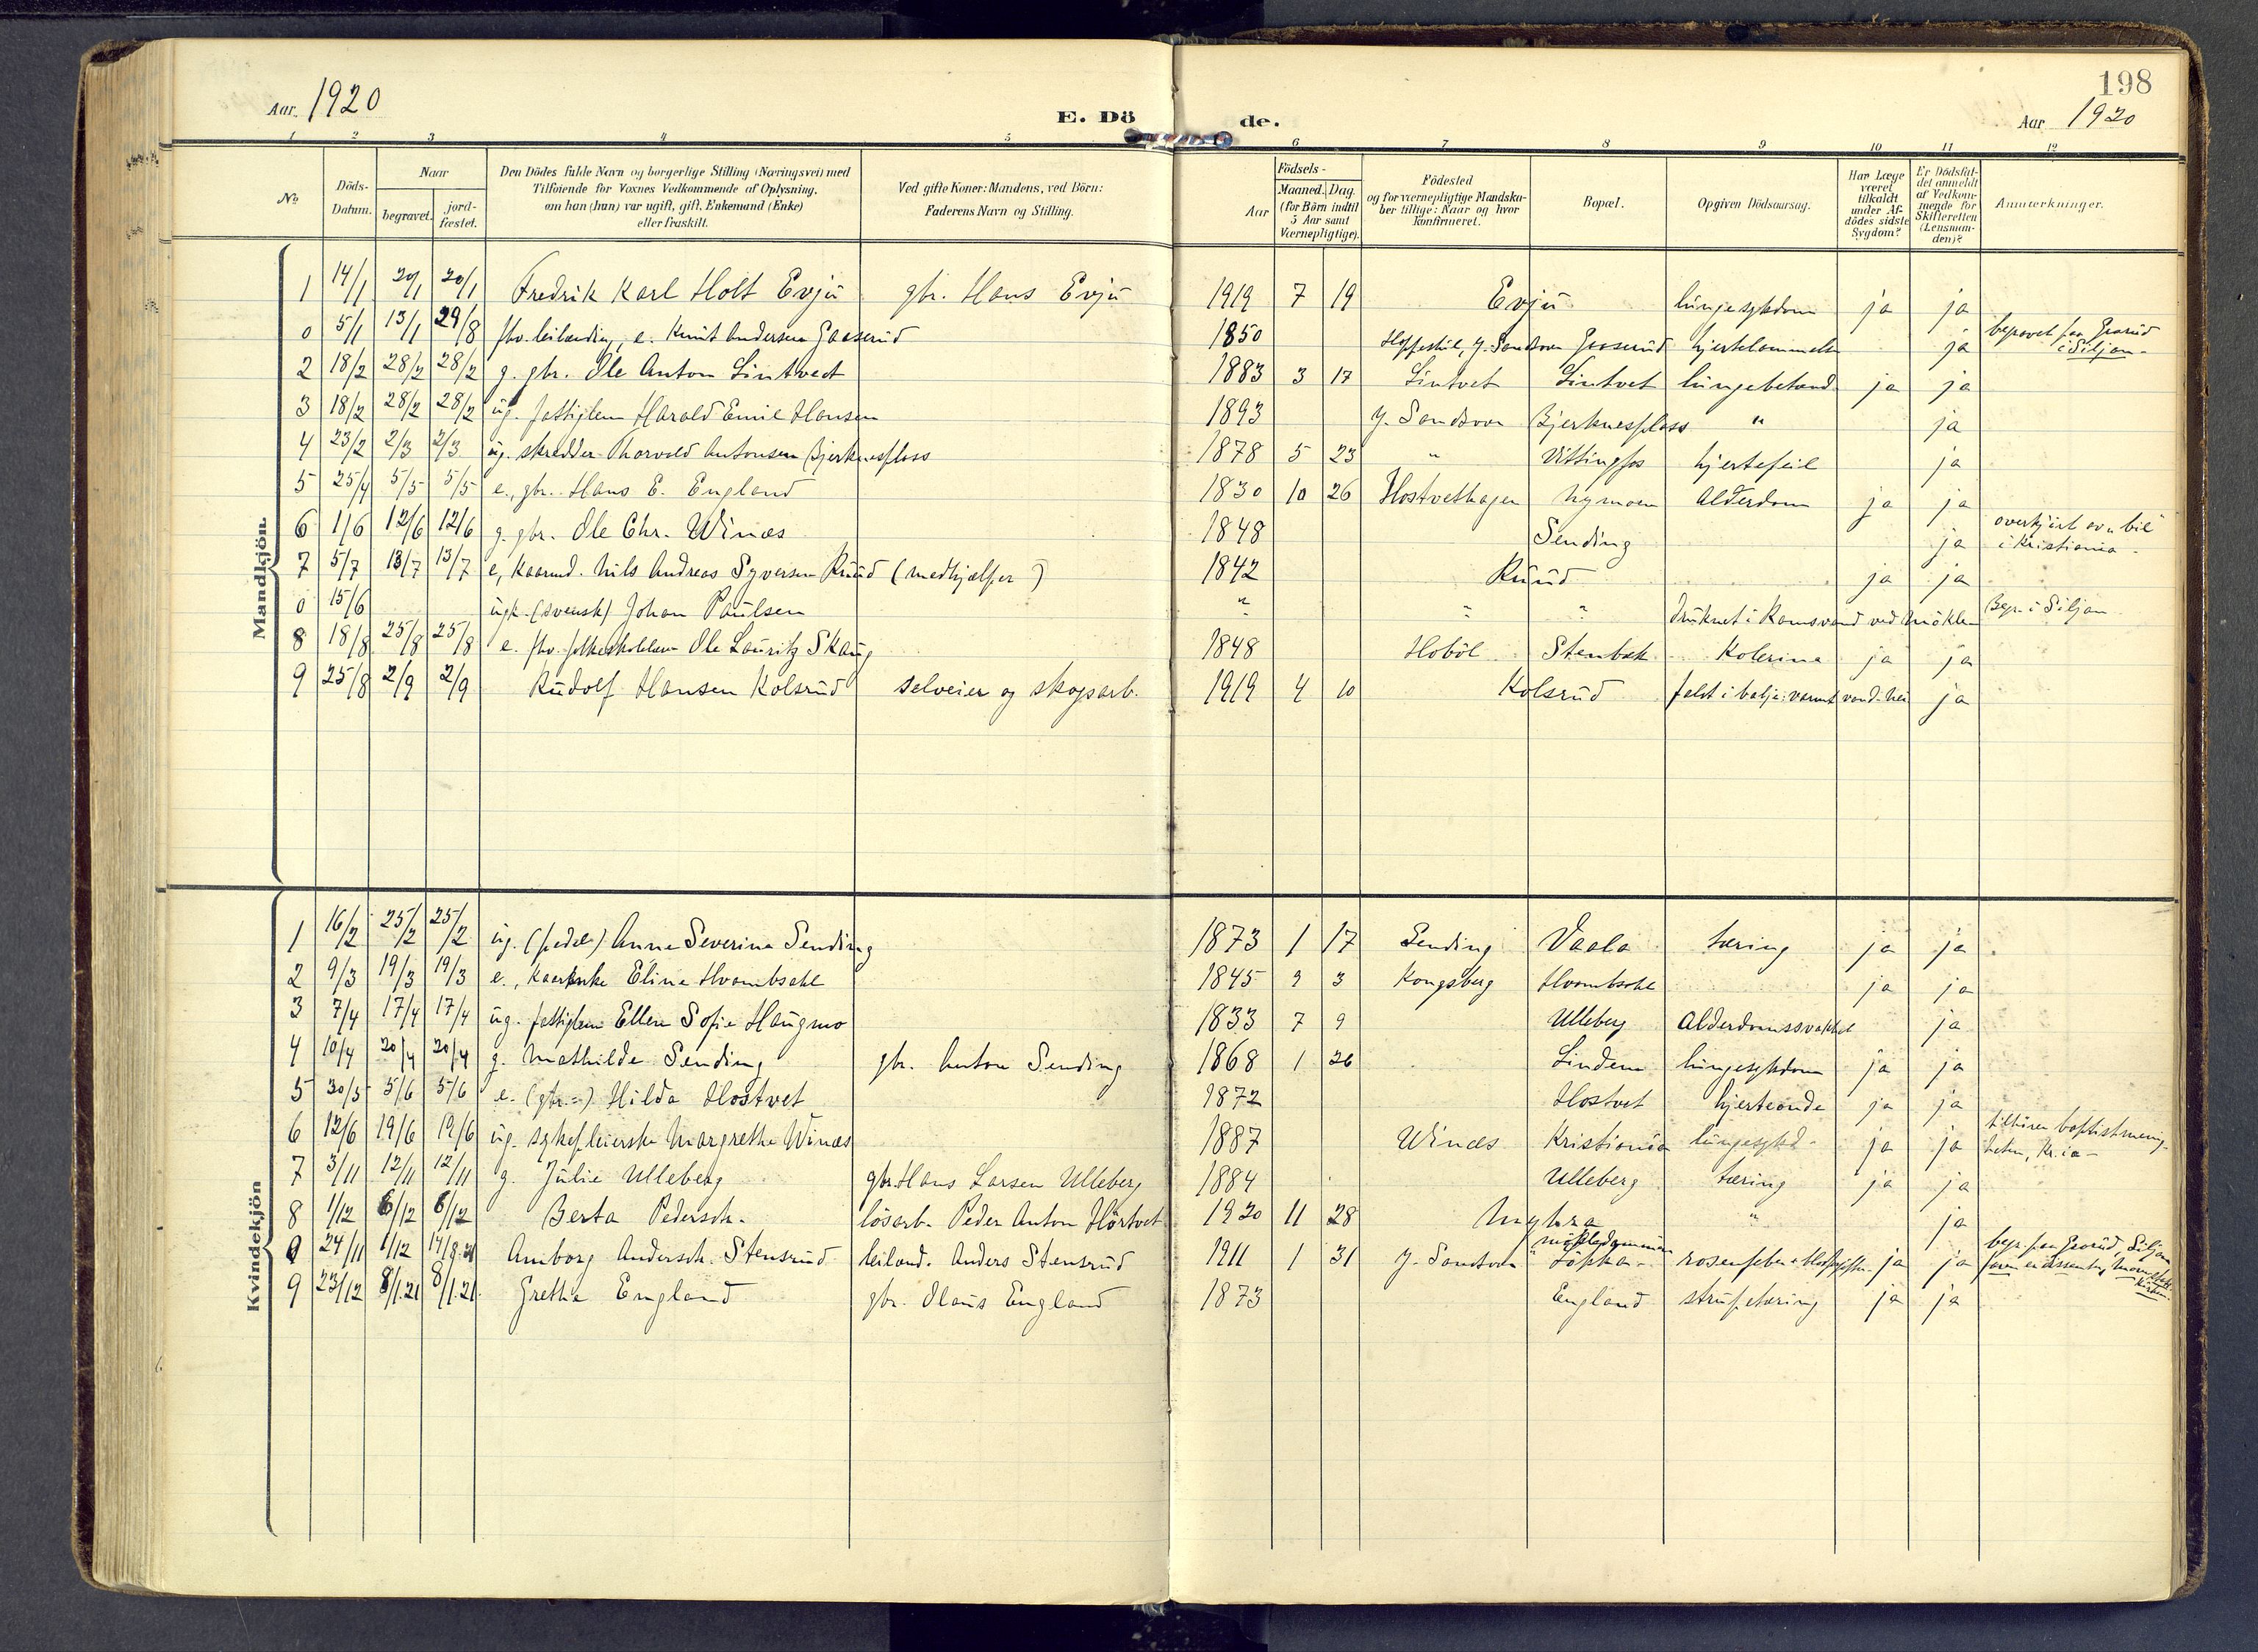 198
Aar 1920 E. Dö de. Aar 1920
1 2 3 4 5 6 7 8 9 10 11 12
№ Döds-Datum. Naar begravet. jord-fæstet. Den Dödes fulde Navn og borgerlige Stilling (Næringsvei) med Tilføiende for Voxnes Vedkommende af Oplysning, om han (hun) var ugift, gift, Enkemand (Enke) eller fraskilt. Ved gifte Koner: Mandens, ved Börn: Faderens Navn og Stilling. Födsels- Aar Maaned. Dag. (for Börn indtil 5 Aar samt Værnepligtige). Födested og for værnepligtige Mandskaber tillige: Naar og hvor konfirmeret. Bopæl. Opgiven Dödsaarsag. Har Læge været tilkaldt under Afdödes sidste Sygdom? Er Dödsfaldet anmeldt af Vedkommende for Skifteretten (Lensmanden)? Anmærkninger.
Mandkjön.
1 14/1 20/1 20/1 Fredrik Karl Holt Evju gbr. Hans Evju 1919 7 19 Evju lungesykdom ja ja
0 5/1 13/1 29/8 fhv. leilænding, e. Knut Andersen Gaaserud 1850 Y. Sandsvær Gaaserud hjertelammelse ja begravet paa Grorud i Siljan
2 18/2 28/2 28/2 g. gbr. Ole Anton Lintvedt 1883 3 17 Lintvet Lintvet lungebetænd. ja ja
3 18/2 28/2 28/2 ug. fattiglem Harald Emil Hansen 1893 Y. Sandsvær Bjerknesplass " ja
4 23/2 2/3 2/3 ug. skredder Thorvald Antonsen Bjerknesplass 1878 5 23 " Vittingfos hjertefeil ja
5 25/4 5/5 5/5 e., gbr. Hans E. England 1830 10 26 Hostvethagen Nymoen Alderdom ja ja
6 1/6 12/6 12/6 g. gbr. Ole Chr. Winæs 1848 Sending ja overkjørt av bil i Kristiania
7 5/7 13/7 13/7 e, kaarmd. Nils Andreas Syversen Ruud (medhjælper) 1842 Ruud ja ja
0 15/6 ugk. (svensk) Johan Paulsen " " " druknet i Ramsvand ved Möklen Begr. i Siljan
8 18/8 25/8 25/8 e. fhv. folkeskolelærer Ole Lauritz Skaug 1848 Hoböl Stenbæk Kolerina ja ja
9 25/8 2/9 2/9 Rudolf Hansen Kolsrud selveier og skogsarb. 1919 4 10 Kolsrud faldt i balje: varmt vand. nei ja
Kvindekjön
1 16/2 25/2 25/2 ug. Anne Severine Sending 1873 1 17 Sending Vaala tæring ja ja
2 9/3 19/3 19/3 e., kaarenke Eline Hvambsahl 1845 9 3 Kongsberg Hvambsahl ja ja
3 7/4 17/4 17/4 ug. fattiglem Ellen Sofie Haugmo 1833 7 9 Ulleberg Alderdomssvakhet ja
4 10/4 20/4 20/4 g. Mathilde Sending gbr. Anton Sending 1868 1 26 Lindem lungesykdom ja ja
5 30/5 5/6 5/6 e. (gbr.=) Hilda Hostvet 1872 Hostvet hjerteonde ja ja
6 12/6 19/6 19/6 ug. sykepleierske Margrethe Winæs 1887 Winæs Kristiania lungesykd. ja ja tilhører baptistmenigheten, Kr.ia
7 3/11 12/11 12/11 g. Julie Ulleberg gbr. Hans Larsen Ulleberg 1884 Ulleberg tæring ja ja
8 1/12 6/12 6/12 Berta Pedersdt. lösarb. Peder Anton Hörtvet 1920 11 28 Myhra " ja
0 24/11 1/12 14/8.21 Amborg Andersdt. Stensrud leilænd. Anders Stensrud 1911 1 31 Y. Sandsvær rosenfeber ja ja begr. paa Grorud, Siljan faren er dissenter,
9 23/12 8/1.21 8/1.21. Grethe England gbr. Olaus England 1873 England strupetæring ja ja